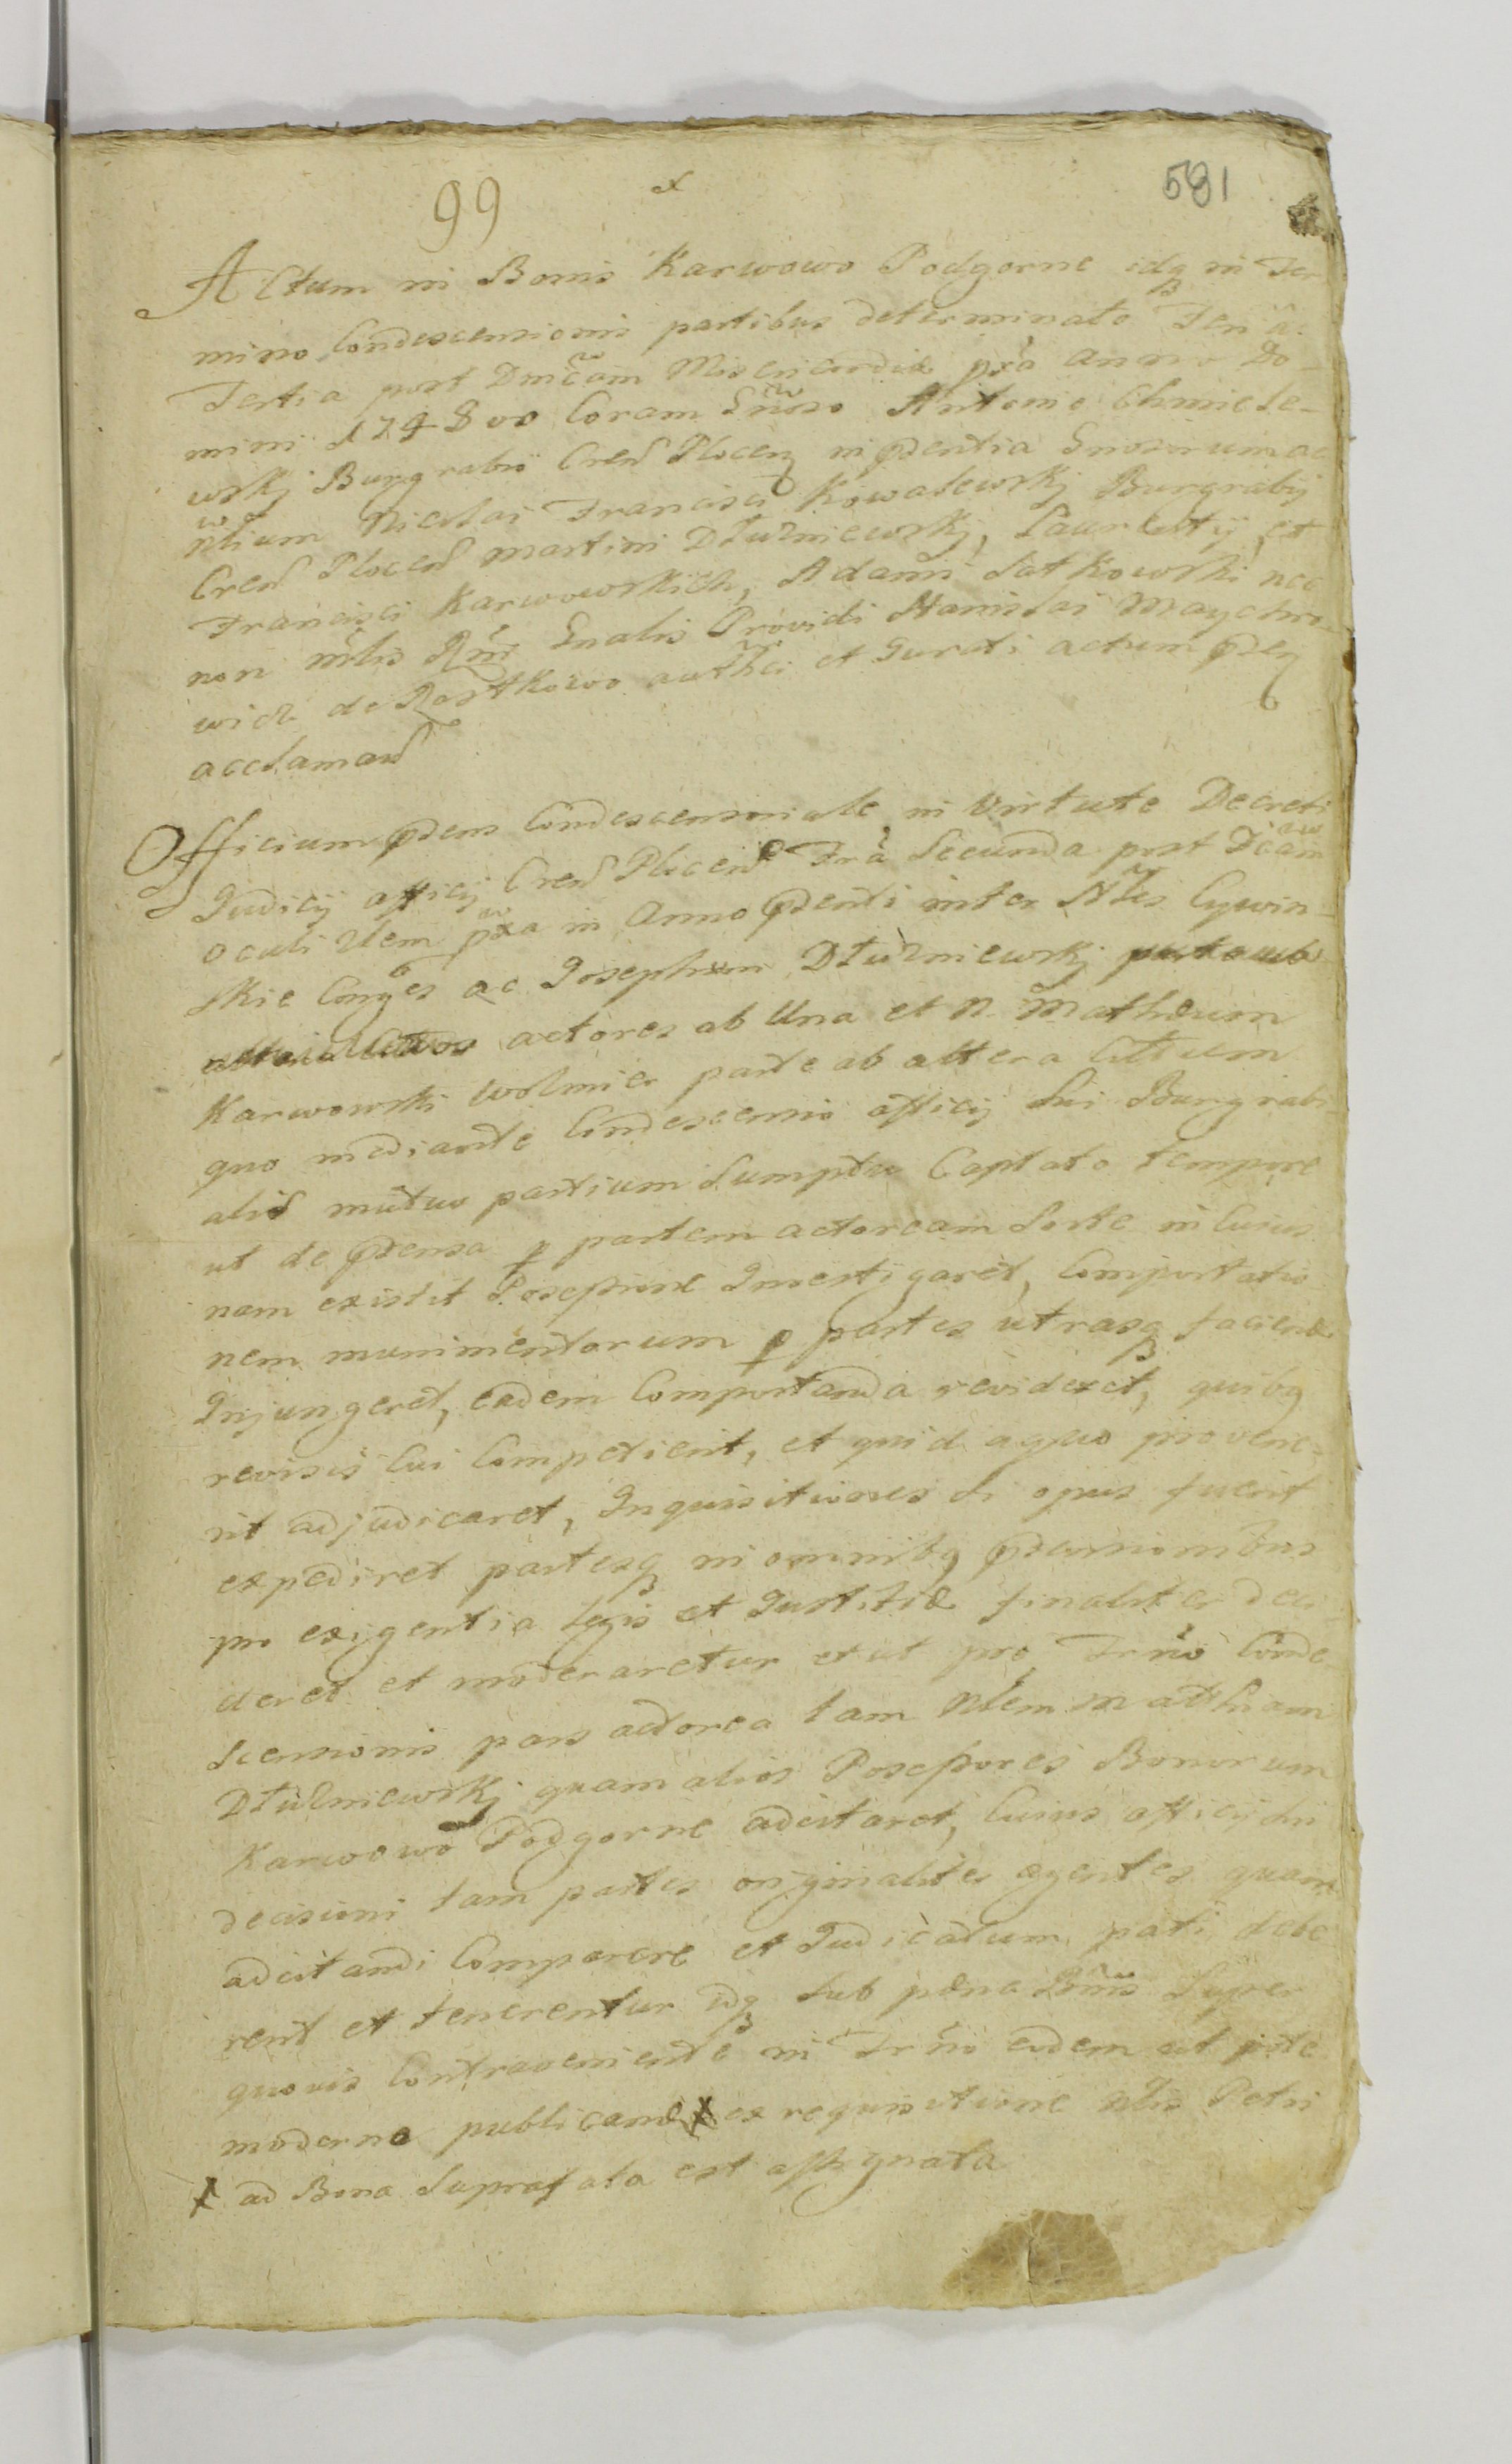 99 x 591
Actum in Bonis Karwowo Podgorne idq in Ter
mino Condescensionis partibus determinato Feria
Tertia post Dmcam Misericordiæ pxa Anno Do-
mini 1748vo Coram Gnoso Antonio Chmiele-
wskj Burgrabio Cren Plocen in pdentia Gnosorum ac
Nlium Nicolai Francisci Kowalewskj Burgrabij
Cren Plocen Martini Dłuzniewskj, Laurentij et
Francisci Karwowskich, Adami Jatkowski nec
non mlis Rnr Gnalis Providi Stanislai Maychro-
wicz de Rostkowo authci et Jurati actum pden
acclaman
Officium pdens Condescensoriale in Virtute Decreti
Judicij officij Cren Plocen Fra Secunda post Dcam
oculi idem pxa in Anno pdenti inter Nles Cywin-
skie Conges ac Josephum Dłuzniewskj
actores ab Una et N. Mathæum
Karwowski Wolmier parte ab altera latum
quo mediante Condescensio officij sui Burgrabi-
alis mutuo partium sumptu Captato tempore
ut de pdensa p partem actoream Sorte in Cuius
nam existit Possessione Investigaret, Comportatio
nem munimentorum p partes utrasq faciend
Injungeret, eadem Comportanda revideret, quibq
revisis Cui Competierit, et quid aquo provene-
rit adjudicaret, Inquisitiones si opus fuerit
expediret partesq in omnibq pdensionibus
pro exigentia legis et Justitiæ finaliter deci-
deret et moderaretur et ut pro Trno Conde-
scensionis pars actorea tam Nlem Mathiam
Dłuzniewskj quam alios Possessores Bonorum
Karwowo Podgorne adcitaret, Cuius officij sui
decisioni tam partes originaliter agentes quam
adcitandi Comparere et Judicatum pati debe
rent et tenerentur idq sub pæna Bnnis Super
quovis Contraveniente in Trno eodem ut pote
moderno publicand x ex requisitione Nlis Petri
x ad Bona Suprafata est assignata